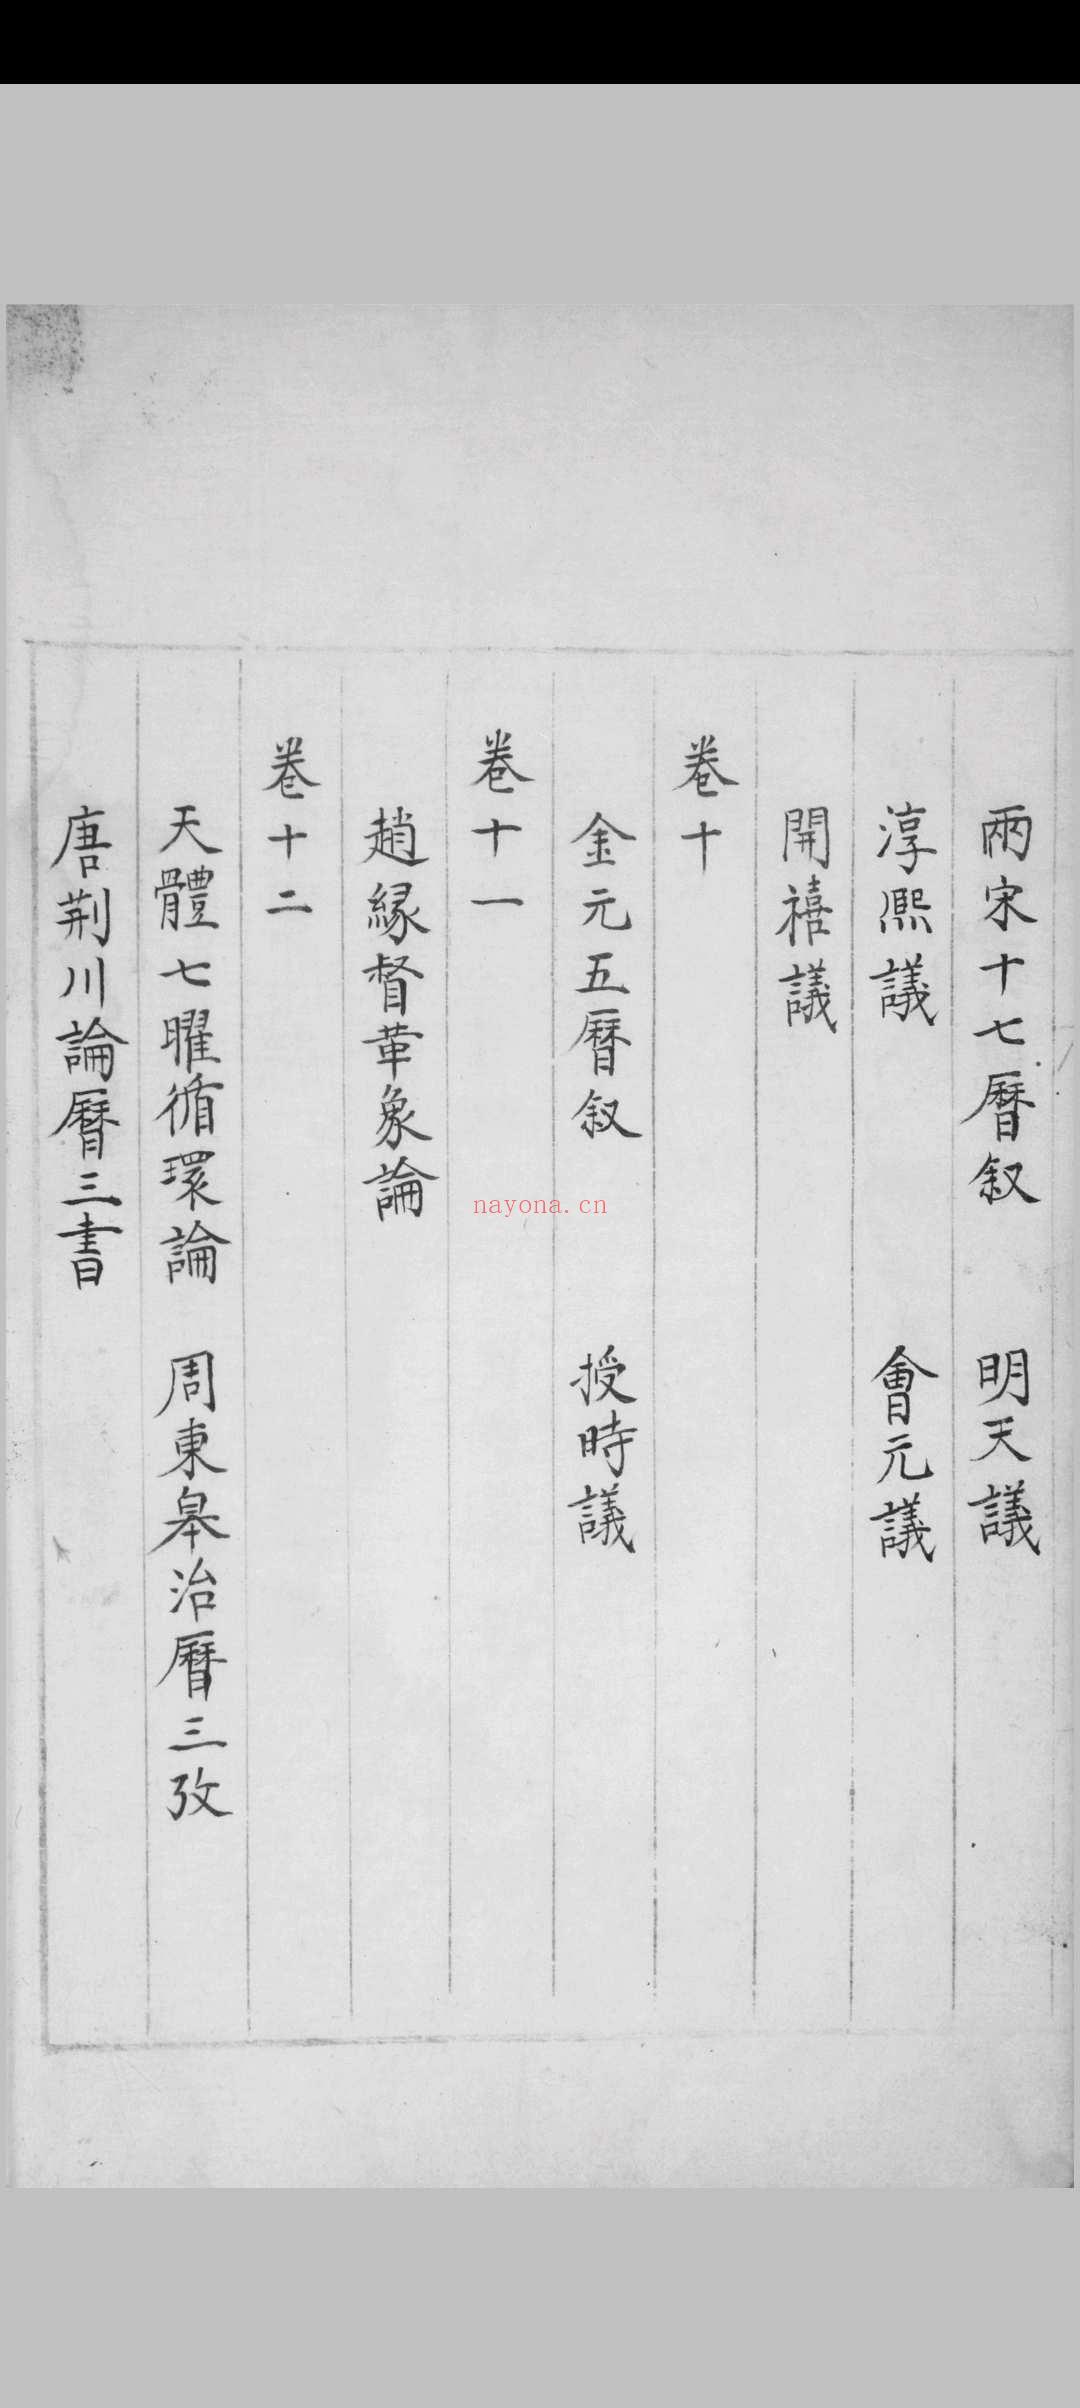 兩宋十七曆叙　明天議
淳熈議　會元議
開禧議
卷十
金元五曆叙　授時議
卷十一
趙縁督革象論
卷十二
天體七曜循環論　周東皋治曆三攷
唐荆川論曆三書
nayona.cn